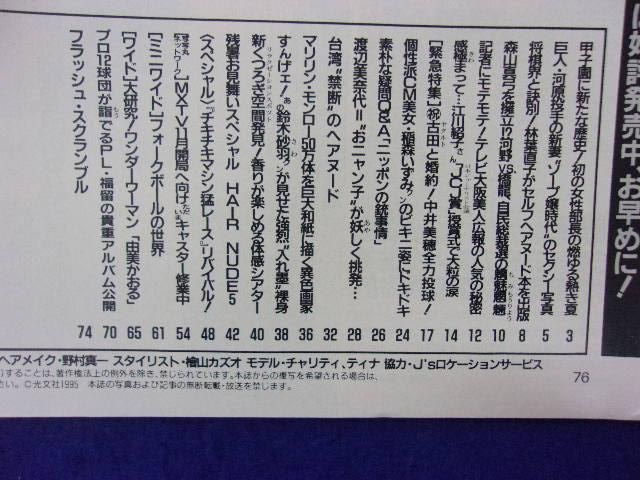 好評発売中、お早めに!
甲子園に新たな歴史!初の女性部長の燃ゆる熱き夏 3
巨人・河原投手の新妻“ソープ嬢時代”のセクシー写真 5
将棋界と訣別!林葉直子がセルフヘアヌード本を出版 8
森山真弓を擁立!?河野vs.橋龍、自民総裁選の魑魅魍魎 10
記者にモテモテ!テレビ大阪美人広報の人気の秘密 12
感極まって…江川紹子さん“JCJ賞”授賞式で大粒の涙 14
[緊急特集]祝古田と婚約!中井美穂全力投球! 17
個性派CM美女・稲森いずみのビキニ姿にドキドキ 24
素朴な疑問Q&A「ニッポンの銃事情」 26
渡辺美奈代=“おニャン子”が妖しく挑発… 28
台湾“禁断”のヘアヌード 32
マリリン・モンロー50万体を巨大和紙に描く異色画家 36
すんげェ!あの鈴木砂羽が見せた強烈“入れ墨”裸身 38
新くつろぎ空間発見!香りが楽しめる体感シアター 40
残暑お見舞いスペシャル HAIR NUDE 5 42
〈スペシャル〉『チキチキマシン猛レース』リバイバル! 48
MXTV11月開局へ向けキャスター修業中 54
[ミニワイド]フォークボールの世界 61
[ワイド]大研究!ワンダーウーマン「由美かおる」 65
プロ12球団が詣でるPL・福留の貴重アルバム公開 70
フラッシュ・スクランブル 74
ヘアメイク・野村真一 スタイリスト・檜山カズオ モデル・チャリティ、ティナ 協力・J'sロケーションサービス
することは、著作権法上の例外を除き、禁じられています。本誌からの複写を希望される場合は、
さい。©光文社1995 本誌の写真および記事の無断転載・放送を禁じます。
76